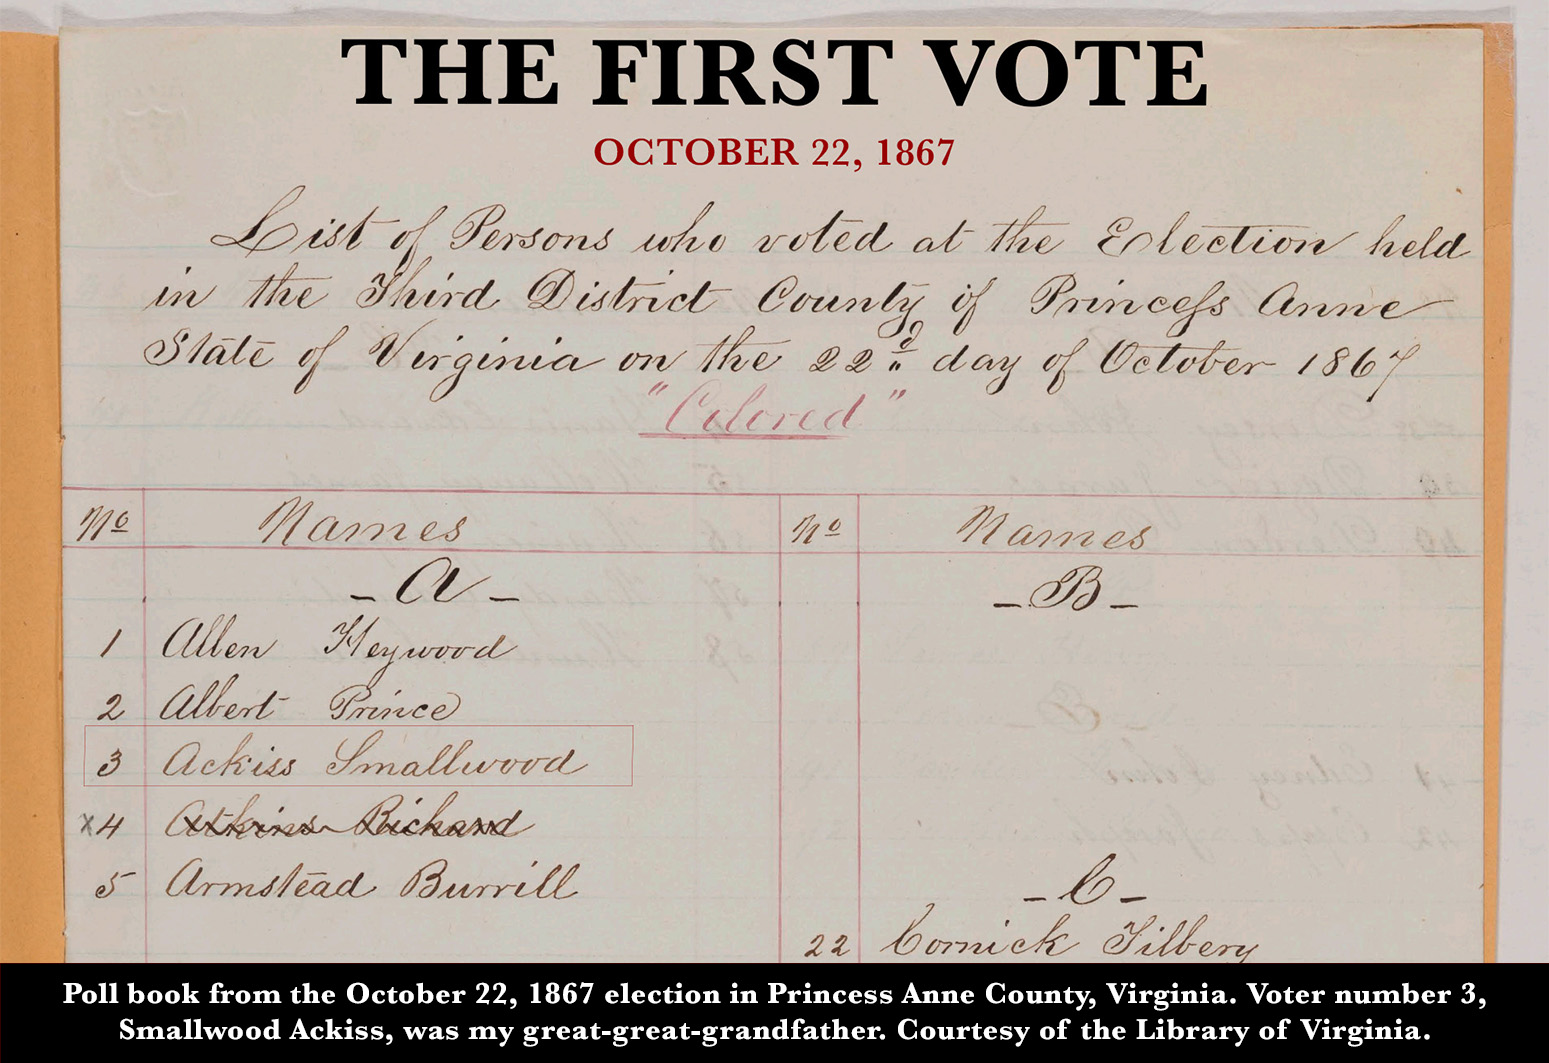 THE FIRST VOTE
OCTOBER 22, 1867
List of Persons who voted at the Election held
in the Third District County of Princess Anne
State of Virginia on the 22d day of October 1867
"Colored"
No Names No Names
- A - - B -
1 Allen Heywood
2 Albert Prince
3 Ackiss Smallwood
x4 Atkins Richard
5 Armstead Burrill
- C -
22 Cornick Tilbery
Poll book from the October 22, 1867 election in Princess Anne County, Virginia. Voter number 3,
Smallwood Ackiss, was my great-great-grandfather. Courtesy of the Library of Virginia.